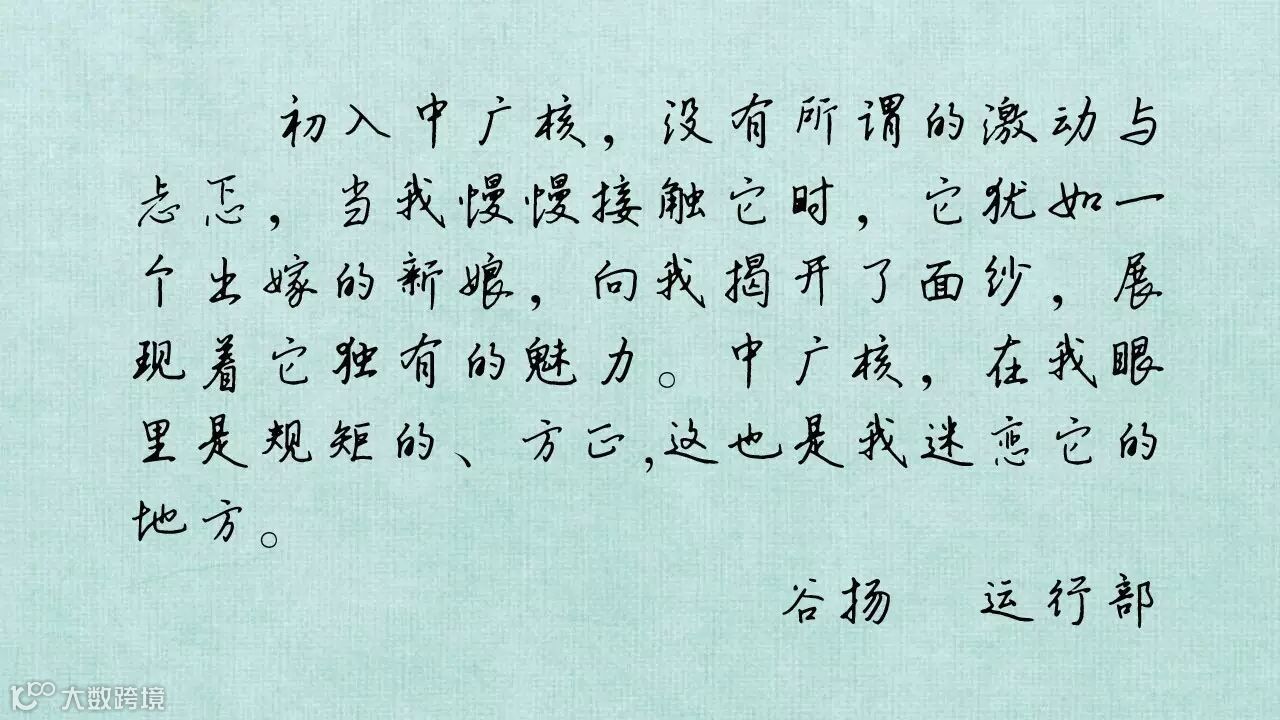 初入中广核，没有所谓的激动与
忐忑，当我慢慢接触它时，它犹如一
个出嫁的新娘，向我揭开了面纱，展
现着它独有的魅力。中广核，在我眼
里是规矩的、方正,这也是我迷恋它的
地方。
谷扬 运行部
大数跨境